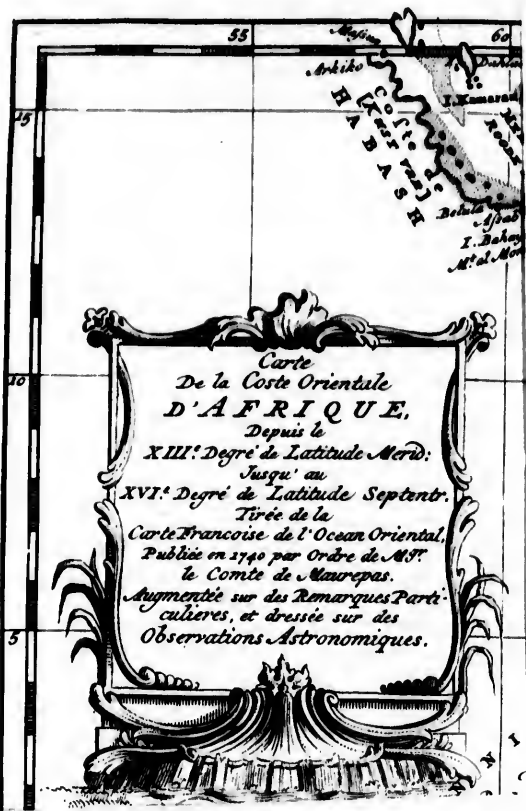 55
60
Arkiko
Dahlac
15
I. Kamaran
Coste de
HABASH
Belula
Assab
10
Carte
De la Coste Orientale
D'AFRIQUE,
Depuis le
XIII.e Degré de Latitude Merid:
Jusqu'au
XVI.e Degré de Latitude Septentr.
Tirée de la
Carte Francoise de l'Ocean Oriental,
Publiée en 1740 par Ordre de M.gr
le Comte de Maurepas.
Augmentée sur des Remarques Parti-
culieres, et dressée sur des
Observations Astronomiques.
5